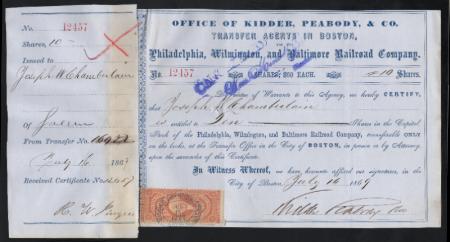 No. 12457
Shares, 10
Issued to
Joseph W. Chamberlain
Of Salem
From Transfer No.
July 16 1869
Received Certificate No. 12457
OFFICE OF KIDDER, PEABODY, & CO.
TRANSFER AGENTS IN BOSTON,
Philadelphia, Wilmington, and Baltimore Railroad Company.
No. 12457 SHARES, $50 EACH. 10 Shares.
of Warrants to this Agency, we hereby CERTIFY,
Joseph W. Chamberlain
is entitled to Ten Shares in the Capital
Stock of the Philadelphia, Wilmington, and Baltimore Railroad Company, transferable ONLY
on the books, at the Transfer Office in the City of BOSTON, in person or by Attorney,
upon the surrender of this Certificate.
In Witness Whereof, we have hereunto affixed our signature, in the
City of Boston, July 16 1869
Kidder Peabody &co